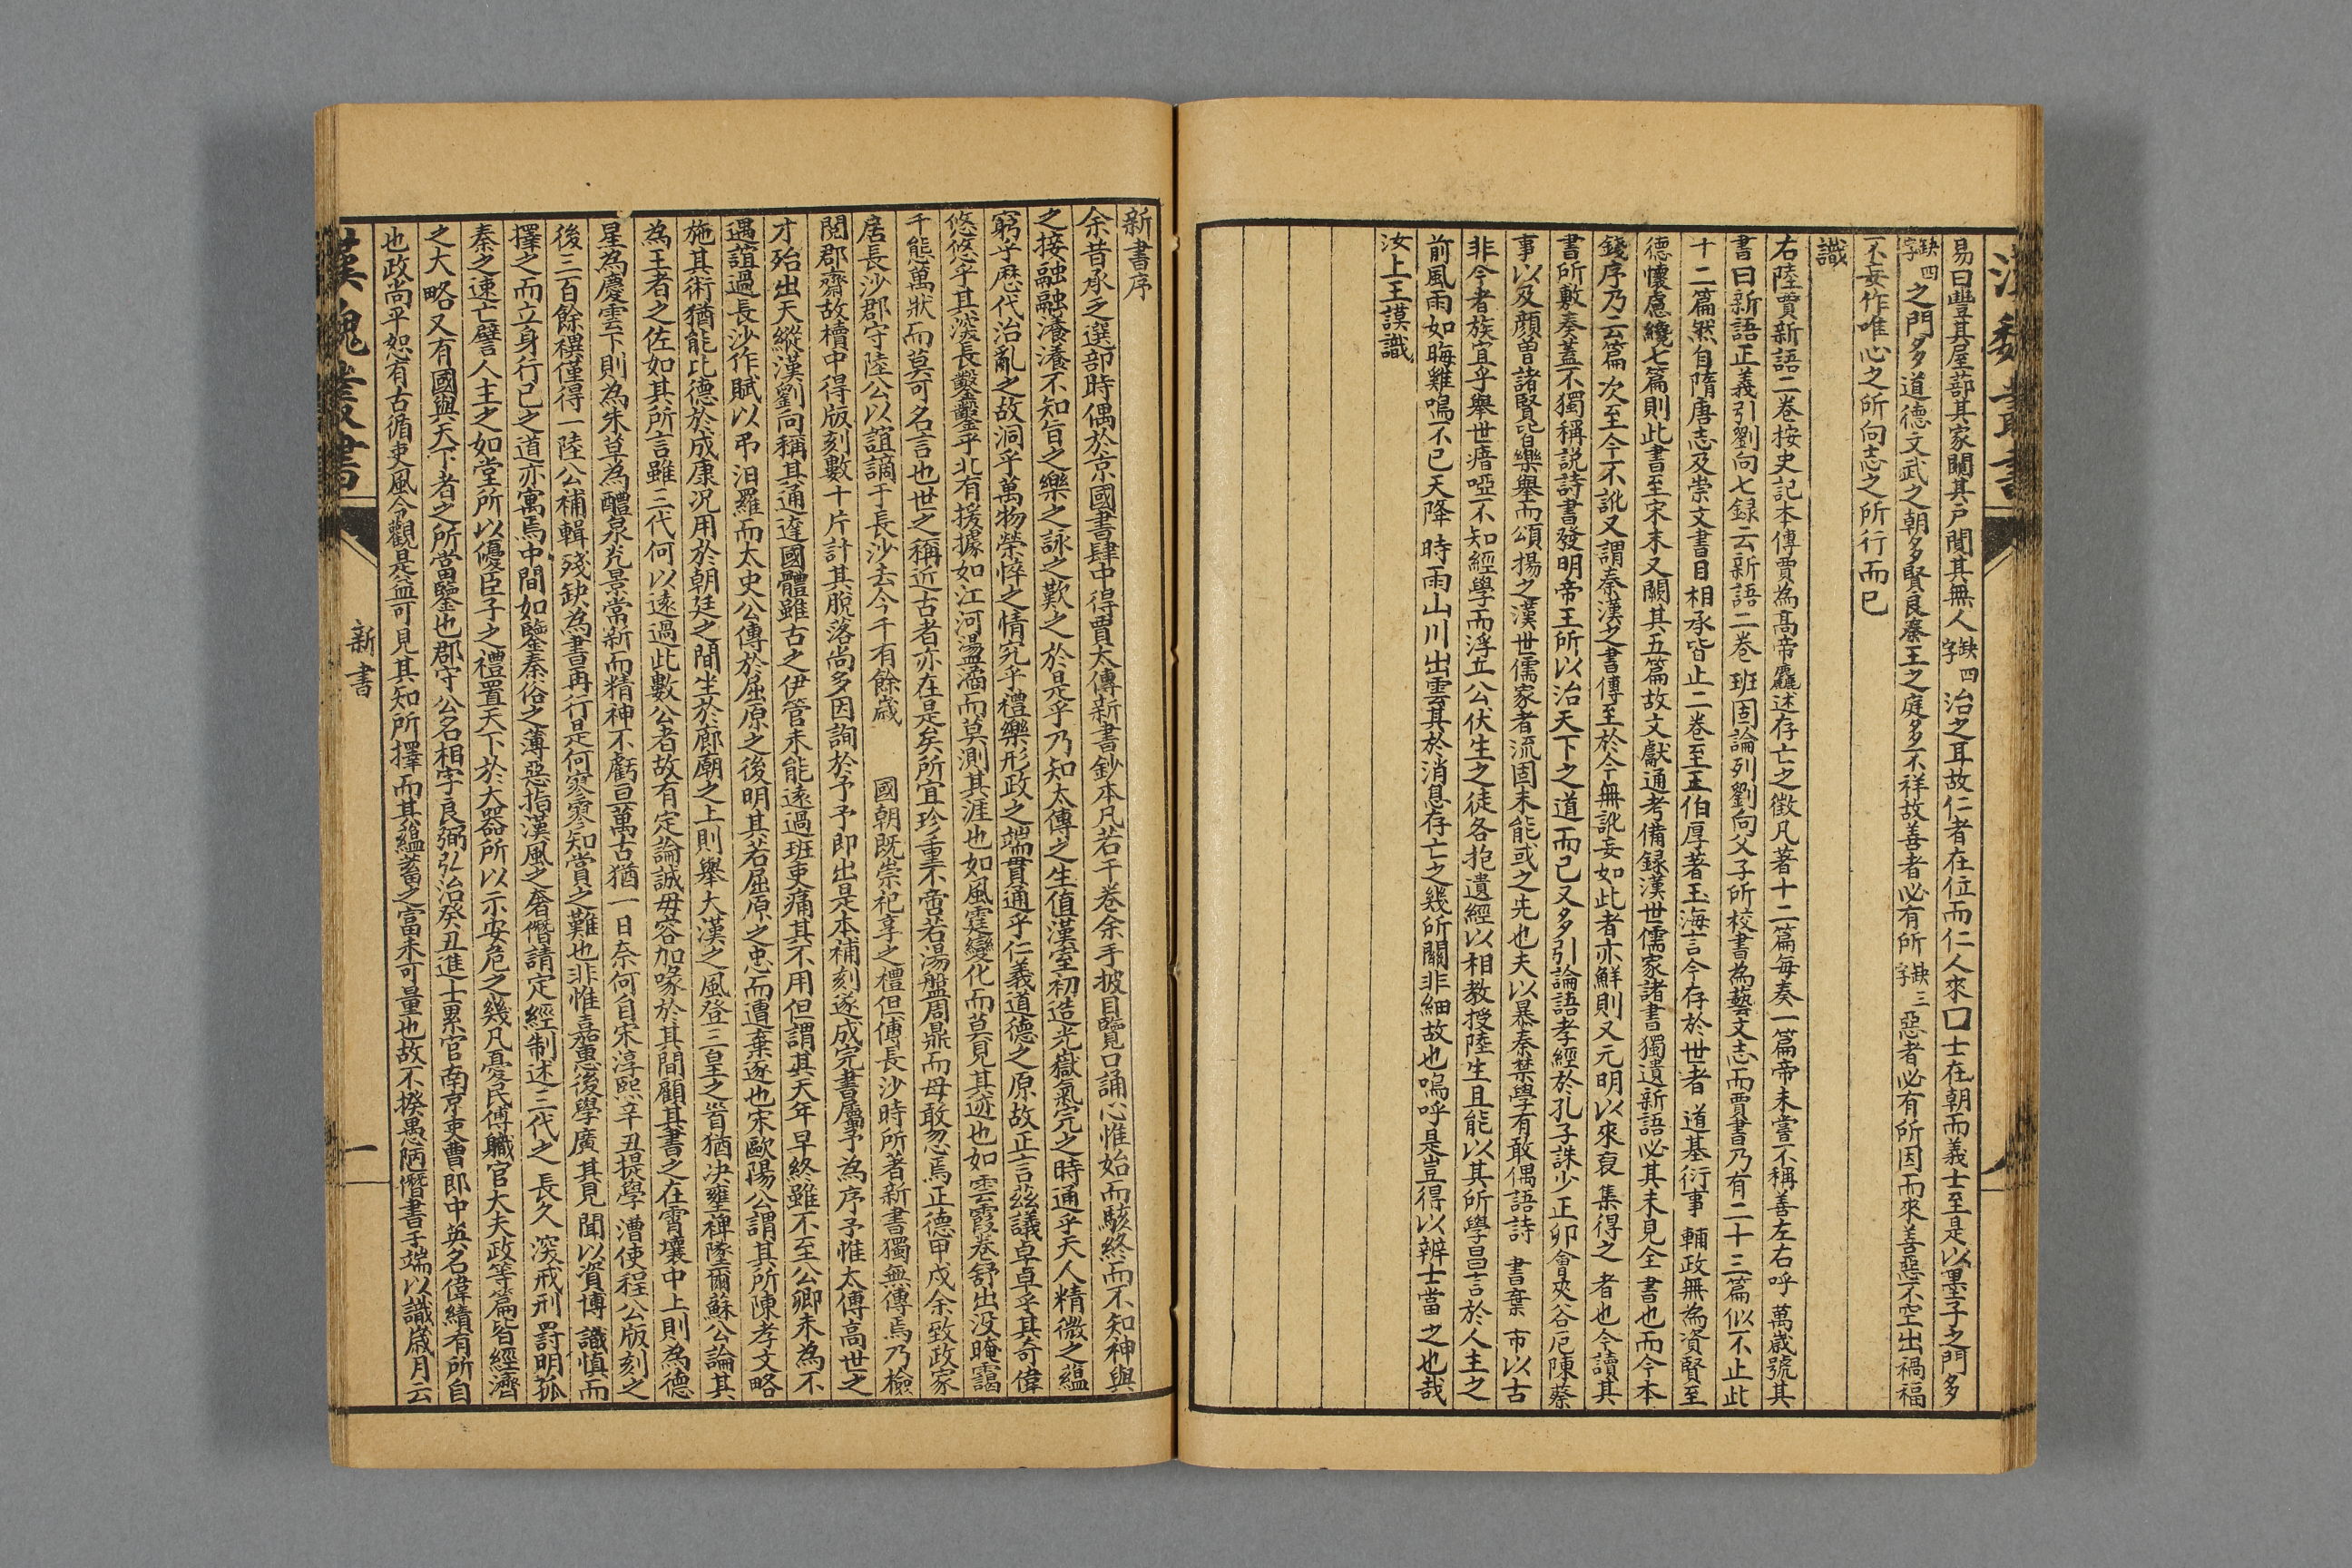 漢魏叢書
易曰豐其屋蔀其家闚其戶闃其無人缺四字治之耳故仁者在位而仁人來口士在朝而義士至是以墨子之門多
缺四字之門多道德文武之朝多賢良秦王之庭多不祥故善者必有所缺三字惡者必有所因而來善惡不空出禍福
不妄作唯心之所向志之所行而已
識
右陸賈新語二卷按史記本傳賈為高帝麤述存亡之徵凡著十二篇每奏一篇帝未嘗不稱善左右呼萬歲號其
書曰新語正義引劉向七録云新語二卷班固論列劉向父子所校書為藝文志而賈書乃有二十三篇似不止此
十二篇然自隋唐志及崇文書目相承皆止二卷至王伯厚著玉海言今存於世者道基術事輔政無為資賢至
德懷慮纔七篇則此書至宋末又闕其五篇故文獻通考備録漢世儒家諸書獨遺新語必其未見全書也而今本
錢序乃云篇次至今不訛又謂秦漢之書傳至於今無訛妄如此者亦鮮則又元明以來裒集得之者也今讀其
書所敷奏蓋不獨稱説詩書發明帝王所以治天下之道而已又多引論語孝經於孔子誅少正卯會夾谷厄陳蔡
事以及顔曾諸賢皆樂舉而頌揚之漢世儒家者流固未能或之先也夫以暴秦禁學有敢偶語詩書棄市以古
非今者族宜乎舉世瘖啞不知經學而浮丘公伏生之徒各抱遺經以相教授陸生且能以其所學昌言於人主之
前風雨如晦雞鳴不已天降時雨山川出雲其於消息存亡之幾所關非細故也嗚呼是豈得以辨士當之也哉
汝上王謨識
新書序
余昔承乏選部時偶於京國書肆中得賈太傅新書鈔本凡若干卷余手披目覽口誦心惟始而駭終而不知神與
之接融融瀁瀁不知旨之樂之詠之歎之於是乎乃知太傅之生值漢室初造光嶽氣完之時通乎天人精微之蘊
窮乎歷代治亂之故洞乎萬物榮悴之情究乎禮樂形政之端貫通乎仁義道德之原故正言兹議卓卓乎其奇偉
悠悠乎其深長鑿鑿乎北有援據如江河瀊滀而莫測其涯也如風霆變化而莫見其迹也如雲霞卷舒出没晻靄
千態萬狀而莫可名言也世之稱近古者亦在是矣所宜珍重不啻若湯盤周鼎而毋敢忽焉正德甲戌余致政家
居長沙郡守陸公以誼謫于長沙去今千有餘歲國朝既崇祀享之禮但傅長沙時所著新書獨無傳焉乃檢
閱郡齋故櫝中得版刻數十片計其脫落尚多因詢於予予即出是本補刻遂成完書屬予為序予惟太傅高世之
才殆出天縱漢劉向稱其通達國體雖古之伊管未能遠過班史痛其不用但謂其天年早終雖不至公卿未為不
遇誼過長沙作賦以弔汨羅而太史公傳於屈原之後明其若屈原之忠而遭棄逐也宋歐陽公謂其所陳孝文略
施其術猶能比德於成康況用於朝廷之間坐於廊廟之上則舉大漢之風登三皇之首猶决壅裨墜爾蘇公論其
為王者之佐如其所言雖三代何以遠過此數公者故有定論誠毋容加喙於其間顧其書之在霄壤中上則為德
星為慶雲下則為朱草為醴泉光景常新而精神不虧亘萬古猶一日奈何自宋淳熙辛丑提學漕使程公版刻之
後三百餘禩僅得一陸公補輯殘缺為書再行是何寥寥知賞之難也非惟嘉惠後學廣其見聞以資博識慎而
擇之而立身行己之道亦寓焉中間如鑒秦俗之薄惡指漢風之奢僭請定經制述三代之長久深戒刑罰明孤
秦之速亡譬人主之如堂所以優臣子之禮置天下於大器所以示安危之幾凡憂民傅職官大夫政等篇皆經濟
之大略又有國與天下者之所當鑒也郡守公名相字良弼弘治癸丑進士累官南京吏曹郎中英名偉績有所自
也政尚平恕有古循吏風今觀是益可見其知所擇而其蘊蓄之富未可量也故不揆愚陋僭書于端以識歲月云
漢魏叢書
新書
一